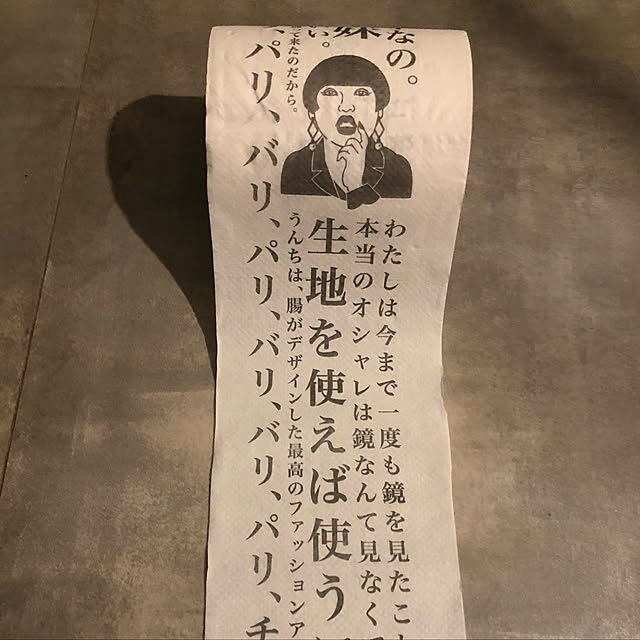 なの。
い。
て来たのだから。
わたしは今まで一度も鏡を見たこ
本当のオシャレは鏡なんて見なく
生地を使えば使う
うんちは、腸がデザインした最高のファッションア
パリ、バリ、パリ、バリ、バリ、パリ、チ